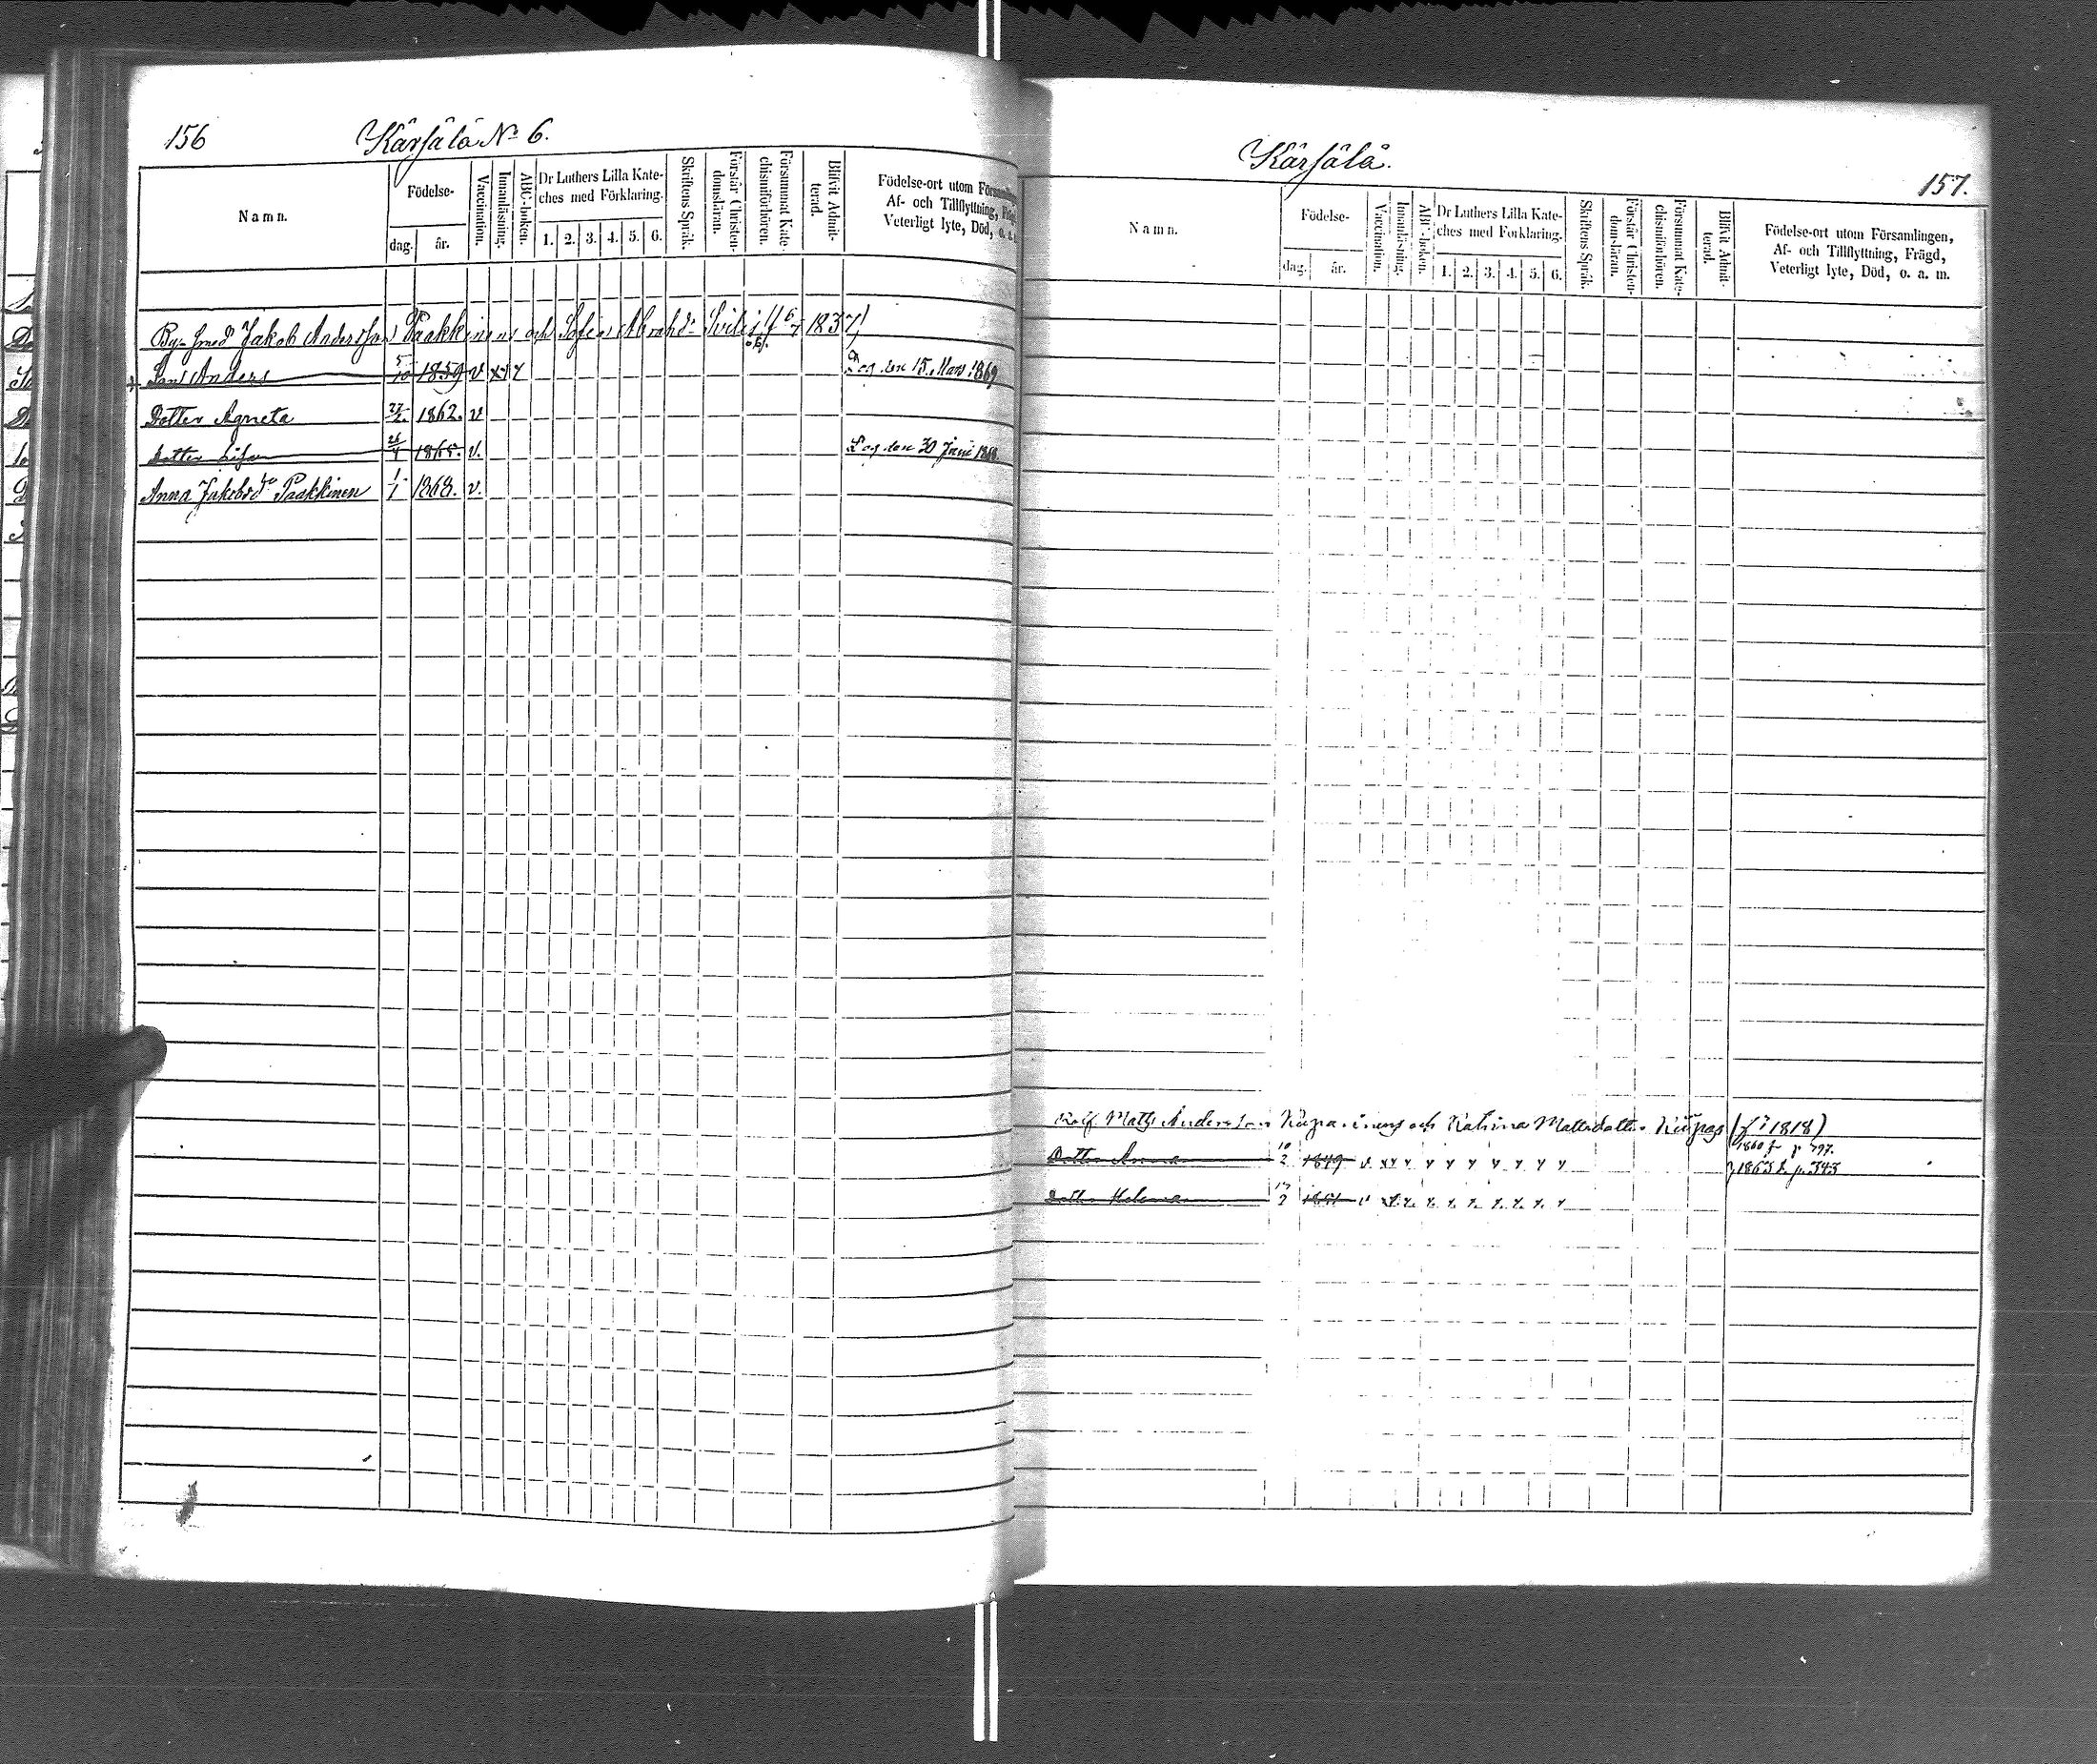 156
Kärsälä No 6.
Namn.
Födelse-
dag.
år.
Vaccination.
Innanläsning.
ABC-boken.
Dr Luthers Lilla Kate-
ches med Förklaring.
1. 2. 3. 4. 5. 6.
Skriftens Språk.
Förstår Christen-
domsläran.
Försummat Kate-
chismiförhören.
Blifvit Admit-
terad.
Födelse-ort utom
Af- och Tillflyttning,
Veterligt lyte, Död, o. a.
By. smed Jakob Andersson Paakkinens och Sofia Abrahd: 1837)
+ Son Anders 5/10 1859 v x Dog den 15. Mars 1869
Dotter Agneta 27/2 1862. v
Dotter 26/4 1865. v. Dog den 30 Juni 1868
Anna Jakobsdr Paakkinen 1/1 1868. v.
Kärsälä.
157.
Namn.
Födelse-
dag.
år.
Vaccination.
Innanläsning.
ABC-boken.
Dr Luthers Lilla Kate-
ches med Förklaring.
1. 2. 3. 4. 5. 6.
Skriftens Språk.
Förstår Christen-
domsläran.
Försummat Kate-
chismiförhören.
Blifvit Admit-
terad.
Födelse-ort utom Församlingen,
Af- och Tillflyttning, Frägd,
Veterligt lyte, Död, o. a. m.
Matts Andersson och Katrina Mattsdotter 1818)
1860 fr p. 797.
Dotter Anna 10/2 1849 v
1863 t. p. 343
Dotter Helena 1851 v